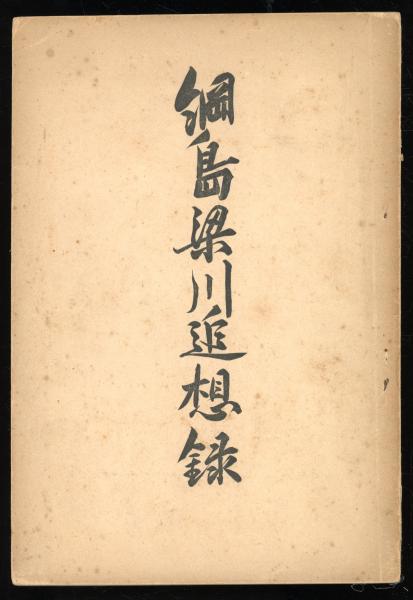 綱島梁川追想録